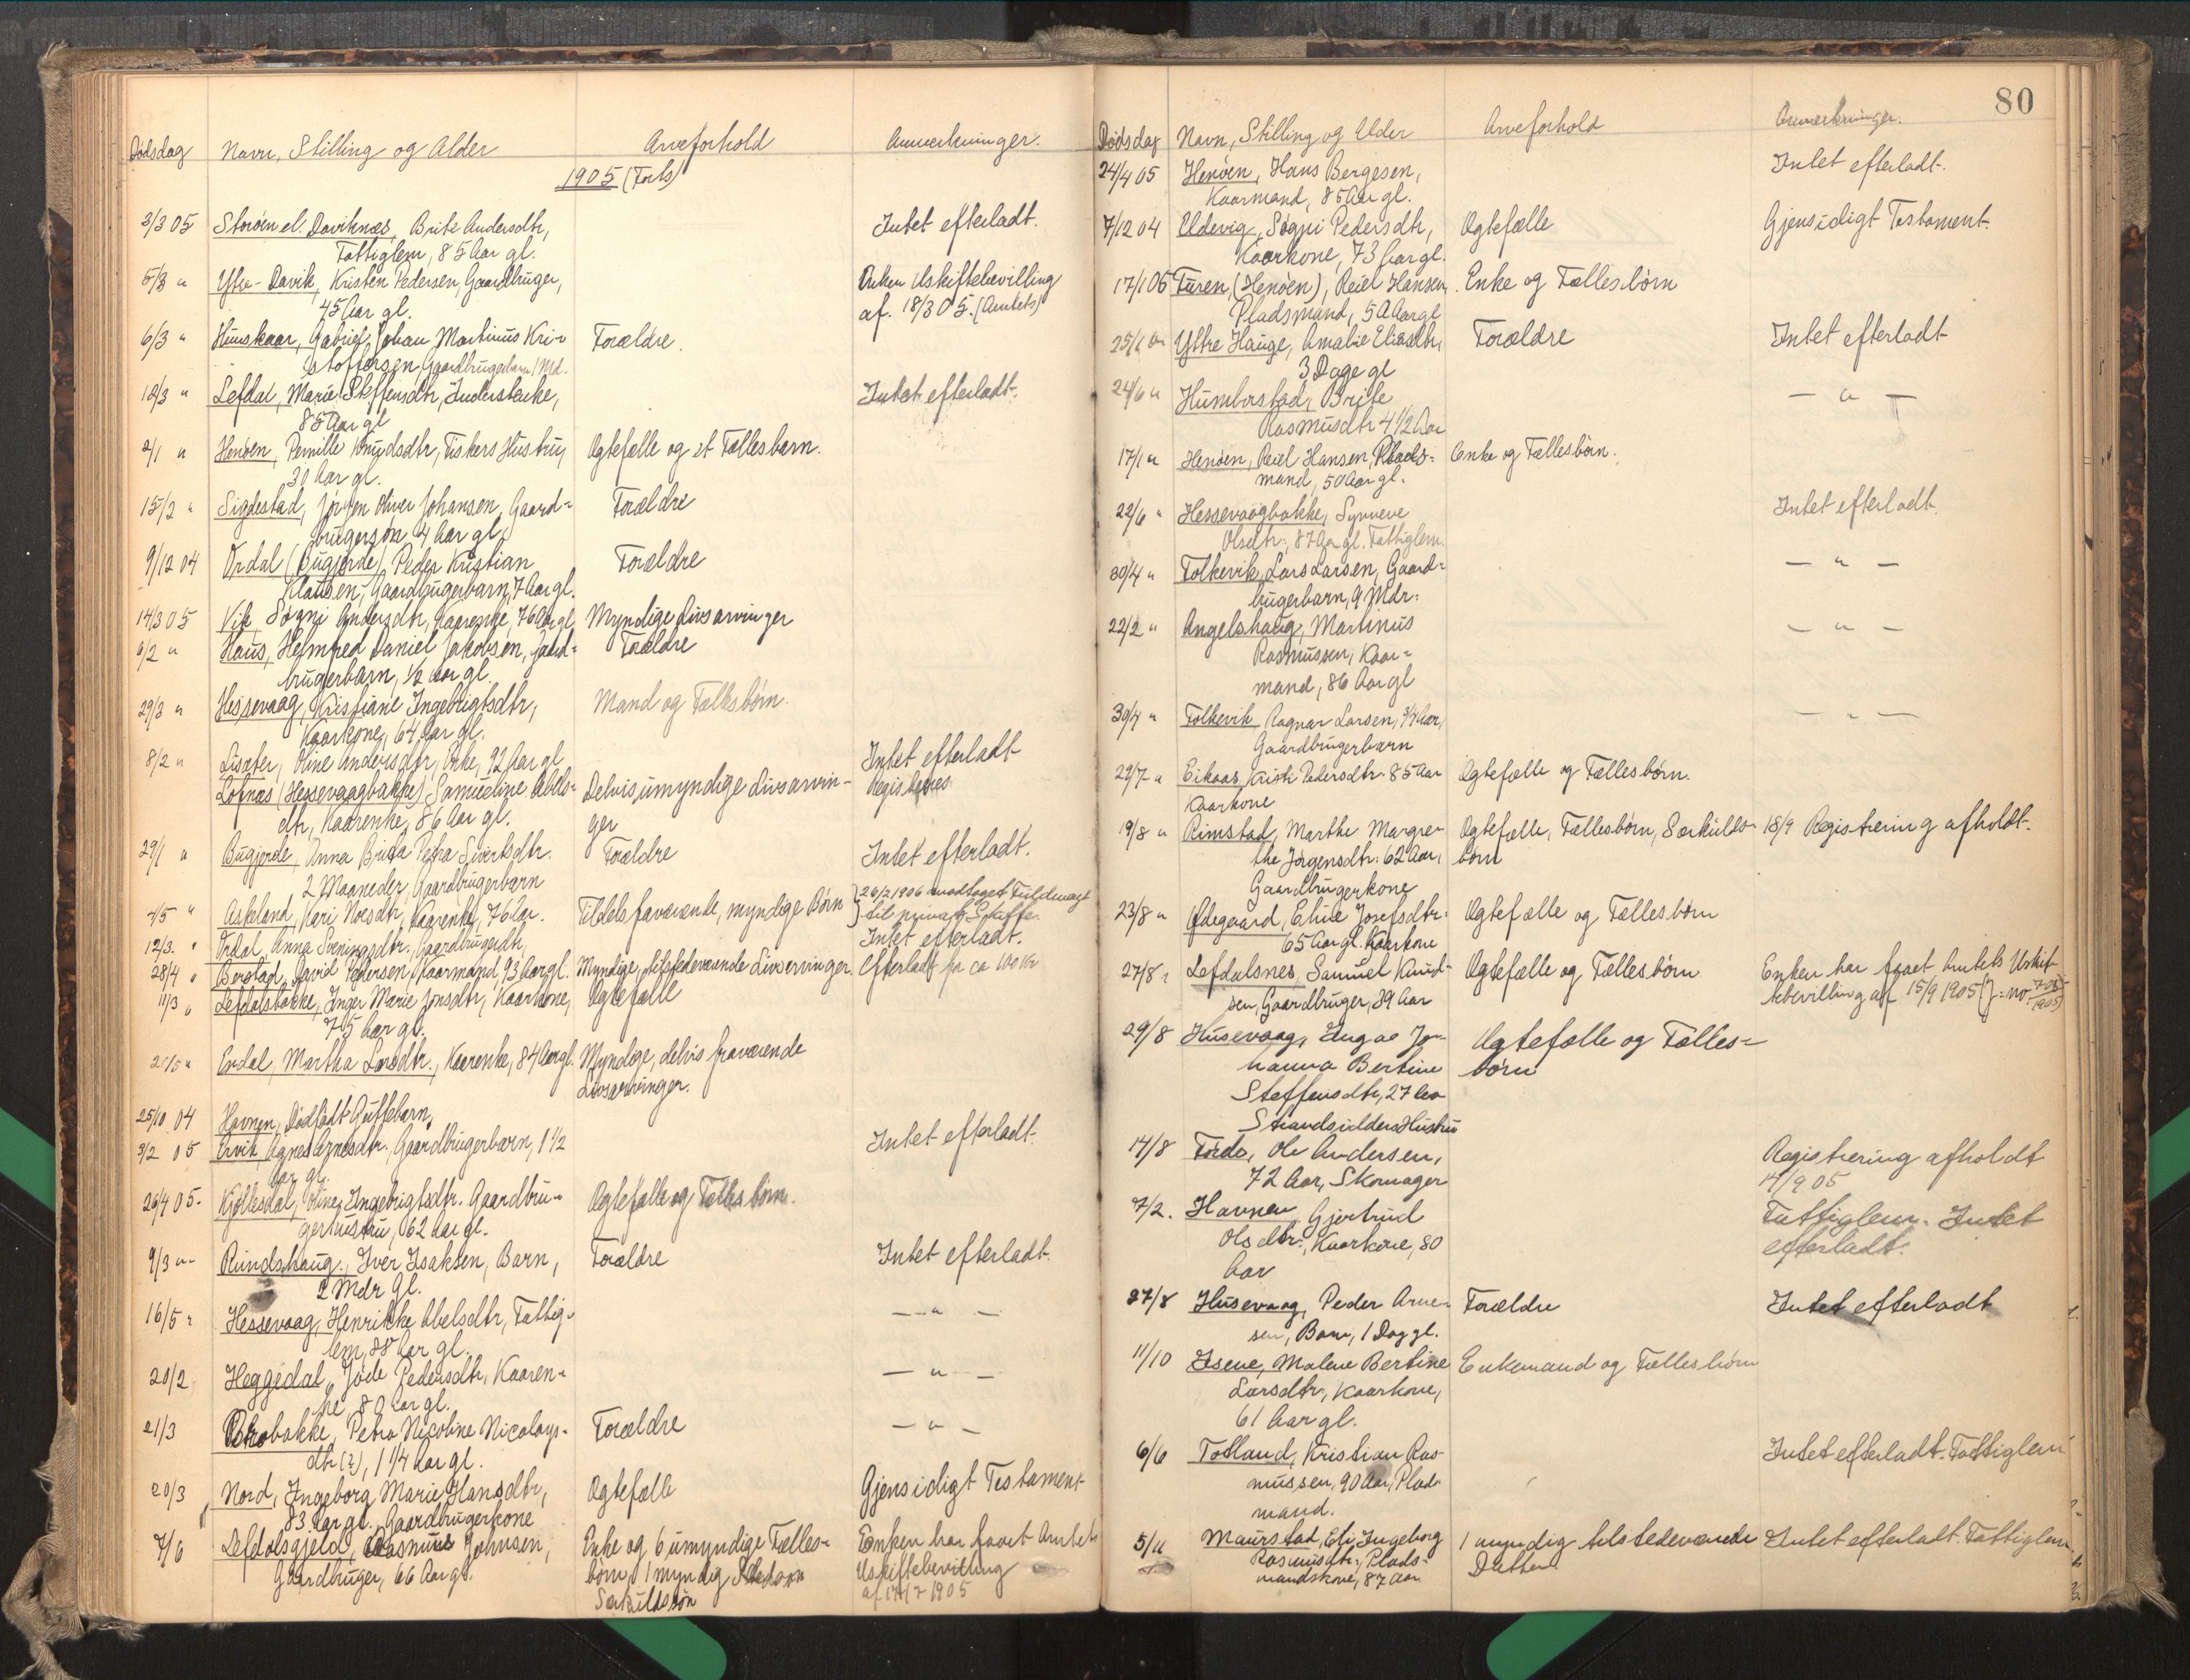 Dødsdag Navn, Stilling og Alder Arveforhold Anmerkninger.
1905 (Forts)
3/3 05 Storøen el. Daviknæs, Brite Andersdtr, Intet efterladt.
Fattiglem, 85 Aar gl.
5/3 " Ytre-Davik, Kristen Pedersen, Gaardbruger, Enken Uskiftebevilling
45 Aar gl. af 18/3 05. (Amtets)
6/3 " Hunskaar, Gabriel Johan Martinus Kri- Forældre.
stoffersen, Gaardbrugerbarn 1 Md.
18/3 " Lefdal, Marie Steffensdtr, Inderstenke, Intet efterladt.
85 Aar gl
2/1 " Henøen, Pernille Knudsdtr, Fiskers Hustru, Ægtefælle og et Fællesbarn.
30 Aar gl.
15/2 " Sigdestad, Jørgen Oliver Johansen, Gaard= Forældre
brugersøn 4 Aar gl
9/12 04 Ordal (Bugjerde) Peder Kristian Forældre
Klausen, Gaardbrugerbarn, 7 Aar gl.
14/3 05 Vik, Søgni Andersdtr, Kaarenke, 76 Aar gl Myndige Livsarvinger
6/2 " Haus, Helmfred Daniel Jakobsen, Gaard= Forældre
brugerbarn, 1/2 Aar gl.
29/3 " Hessevaag, Kristiane Ingebrigtsdtr, Mand og Fællesbørn.
Kaarkone, 64 Aar gl.
8/2 " Lisæter, Oline Andersdtr, Enke, 92 Aar gl Intet efterladt
Lofnæs (Hessevaagbakke) Samueline Abels- Delvis umyndige Livsarvin- Registreres
dtr, Kaarenke, 86 Aar gl. ger
29/1 " Bugjerde, Anna Brita Petra Sivertsdtr. Forældre Intet efterladt.
2 Maaneder, Gaardbrugerbarn
4/5 " Askeland, Kari Moesdtr, Kaarenke, 76 Aar. Tildels faværende, myndige Børn } 26/2 1906 modtaget Fuldmagt
til privat Skifte.
12/3. " Ordal, Anna Sveningsdtr. Gaardbrugerdtr, Intet efterladt.
28/4 " Berstad, David Pedersen, Kaarmand, 93 Aar gl. Myndige, tilstedeværende Livsarvinger. Efterladt for ca 100 Kr
11/3 " Lefdalsbakke, Inger Marie Jonsdtr, Kaarkone, Ægtefælle
75 Aar gl.
20/5 " Endal, Martha Larsdtr., Kaarenke, 84 Aar gl. Myndige, delvis fraværende
Livsarvinger.
25/10 04 Havnen, Dødfødt Guttebarn,
3/2 05 Ervik, Agnes Agnesdtr. Gaardbrugerbarn, 1 1/2 Intet efterladt.
Aar gl.
26/4 05. Kjøllesdal, Oline Ingebrigtsdtr. Gaardbru- Ægtefælle og Fællesbørn.
gerhustru, 62 Aar gl.
9/3 " Rundshaug, Iver Isaksen, Barn, Forældre Intet efterladt.
2 Mdr gl.
16/5 " Hessevaag, Henrikke Abelsdtr, Fattig- — " —
lem, 88 Aar gl.
20/2 Heggedal, Jøde Pedersdtr, Kaaren- — " —
ke 80 Aar gl.
21/3 bakke, Petra Nicoline Nicolays- Forældre — " —
dtr (?), 1 1/4 Aar gl.
20/3 Nord, Ingeborg Marie Hansdtr, Ægtefælle Gjensidigt Testament
83 Aar gl. Gaardbrugerkone
7/6 Lefdalsgjeld, Rasmus Johnsen, Enke og 6 umyndige Fælles- Enken har faaet Amtets
Gaardbruger, 66 Aar gl. børn, 1 myndig Uskiftebevilling
Særkuldssøn af 17/7 1905
80
Dødsdag Navn, Stilling og Alder Arveforhold Anmerkninger.
24/4 05 Henøen, Hans Bergesen, Intet efterladt.
Kaarmand, 85 Aar gl.
7/12 04 Eldevig, Søgni Pedersdtr, Ægtefælle Gjensidigt Testament.
Kaarkone, 73 Aar gl.
17/1 05 Furen, (Henøen), Reiel Hansen Enke og Fællesbørn
Pladsmand, 50 Aar gl
25/1 " Ytre Hauge, Amalie Eliasdtr, Forældre Intet efterladt
3 Dage gl
24/6 " Humborstad, Brite — " —
Rasmusdtr 4 1/2 Aar
17/1 " Henøen, Reiel Hansen, Plads= Enke og Fællesbørn.
mand, 50 Aar gl.
22/6 " Hessevaagbakke, Synneve Intet efterladt.
Olsdtr., 87 Aar gl. Fattiglem.
30/4 " Folkevik, Lars Larsen, Gaard= — " —
brugerbarn, 9 Mdr.
22/2 " Angelshaug, Martinus — " —
Rasmussen, Kaar=
mand, 86 Aar gl
30/4 " Folkevik, Ragnar Larsen, 3/4 Aar, — " —
Gaardbrugerbarn
29/7 " Eikaas, Kristi Pedersdtr. 85 Aar Ægtefælle og Fællesbørn.
Kaarkone
19/8 " Rimstad, Marthe Margre- Ægtefælle, Fællesbørn, Særkulds- 18/9 Registrering afholdt.
the Jørgensdtr. 62 Aar, børn
Gaardbrugerkone
23/8 " Ødegaard, Eline Josefsdtr. Ægtefælle og Fællesbørn
65 Aar gl. Kaarkone
27/8 " Lefdalsnes, Samuel Knud- Ægtefælle og Fællesbørn Enken har faaet Amtets Uskif-
sen, Gaardbruger, 39 Aar tebevilling af 15/9 1905 (J. no.
29/8 Husevaag, Ingae Jo- Ægtefælle og Fælles=
hanna Bertine børn
Steffensdtr, 27 Aar
Strandsidders Hustru
14/8 Førde, Ole Andersen, Registrering afholdt
72 Aar, Skomager 14/9 05
7/2. Havnen, Gjertrud Fattiglem. Intet
Olsdtr., Kaarkone, 80 efterladt.
Aar
27/8 Husevaag, Peder Arne- Forældre Intet efterladt
sen, Barn, 1 Dag gl.
11/10 Isene, Malene Bertine Enkemand og Fællesbørn
Larsdtr., Kaarkone,
61 Aar gl.
6/6 Totland, Kristian Ras- Intet efterladt. Fattiglem
mussen, 90 Aar, Plads-
mand.
5/11 Maurstad, Eli Ingeborg 1 myndig tilstedeværende Intet efterladt. Fattiglem
Rasmusdtr., Plads- Datter.
mandskone, 87 Aar.